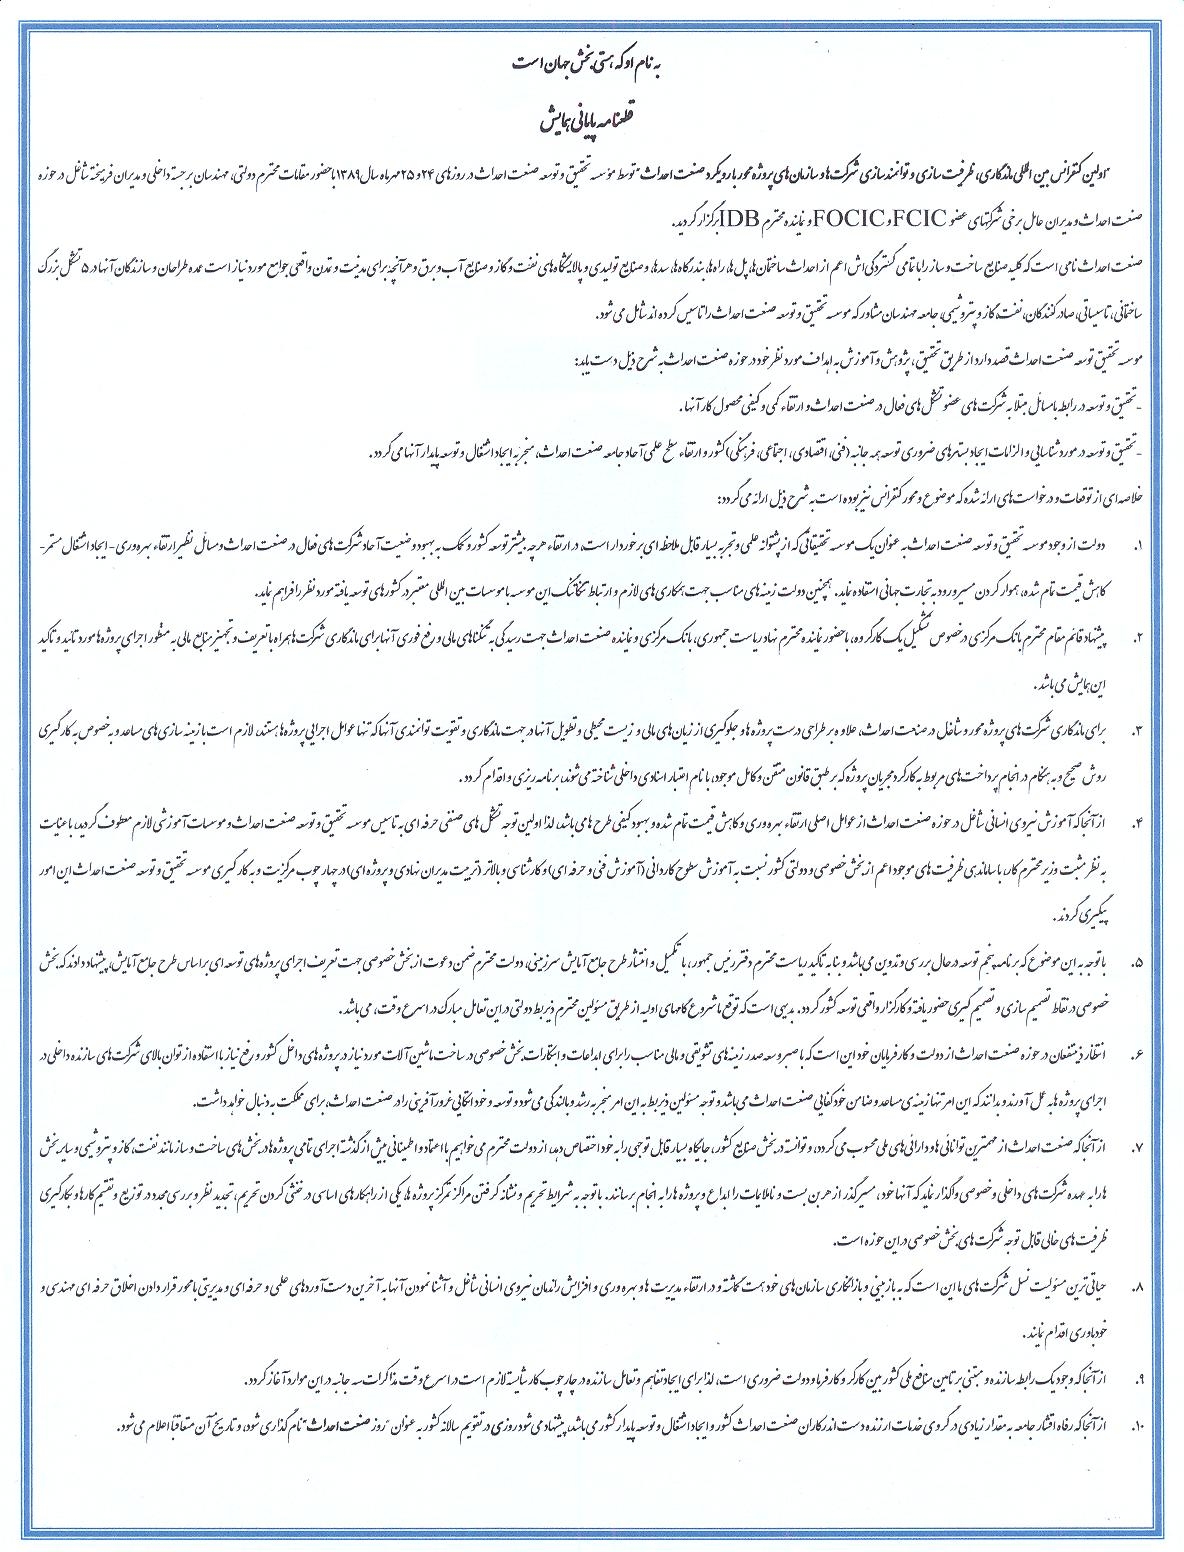 به نام او که هستی بخش جهان است
قطعنامه پایانی همایش
"اولین کنفرانس بین المللی ماندگاری، ظرفیت سازی و توانمند سازی شرکت ها و سازمان های پروژه محور با رویکرد صنعت احداث" توسط مؤسسه تحقیق و توسعه صنعت احداث در روزهای ۲۴ و ۲۵ مهر ماه سال ۱۳۸۹ با حضور مقامات محترم دولتی، مهندسان برجسته داخلی و مدیران فرهیخته شاغل در حوزه
صنعت احداث و مدیران عامل برخی شرکتهای عضو FCIC و FOCIC و نماینده محترم IDB برگزار گردید.
صنعت احداث نامی است که کلیه صنایع ساخت و ساز را با تمامی گستردگی اش اعم از احداث ساختمان ها، پل ها، راه ها، بندرگاه ها، سدها، و صنایع تولیدی و پالایشگاه های نفت و گاز و صنایع آب و برق و هر آنچه برای مدنیت و تمدن واقعی جوامع مورد نیاز است عمده طراحان و سازندگان آنها در ۵ تشکل بزرگ
ساختمانی، تاسیساتی، صادر کنندگان، نفت، گاز و پتروشیمی، جامعه مهندسان مشاور که موسسه تحقیق و توسعه صنعت احداث را تاسیس کرده اند شامل می شود.
موسسه تحقیق توسعه صنعت احداث قصد دارد از طریق تحقیق، پژوهش و آموزش به اهداف مورد نظر خود در حوزه صنعت احداث به شرح ذیل دست یابد:
- تحقیق و توسعه در رابطه با مسائل مبتلا به شرکت های عضو تشکل های فعال در صنعت احداث و ارتقاء کمی و کیفی محصول کار آنها.
- تحقیق و توسعه در مورد شناسایی و الزامات ایجاد بسترهای ضروری توسعه همه جانبه (فنی، اقتصادی، اجتماعی، فرهنگی) کشور و ارتقاء سطح علمی آحاد جامعه صنعت احداث، منجر به ایجاد اشتغال و توسعه پایدار آنها می گردد.
خلاصه ای از توقعات و درخواست های ارائه شده که موضوع و محور کنفرانس نیز بوده است به شرح ذیل ارائه می گردد:
۱. دولت از وجود موسسه تحقیق و توسعه صنعت احداث به عنوان یک موسسه تحقیقاتی که از پشتوانه علمی و تجربه بسیار قابل ملاحظه ای برخوردار است، در ارتقاء هرچه بیشتر توسعه کشور و کمک به بهبود وضعیت آحاد شرکت های فعال در صنعت احداث و مسائل نظیر ارتقاء بهره وری - ایجاد اشتغال مستمر -
کاهش قیمت تمام شده، هموار کردن مسیر ورود به تجارت جهانی استفاده نماید. همچنین دولت زمینه های مناسب جهت همکاری های لازم و ارتباط تنگاتنگ این موسسه با موسسات بین المللی معتبر در کشورهای توسعه یافته مورد نظر را فراهم نماید.
۲. پیشنهاد قائم مقام محترم بانک مرکزی در خصوص تشکیل یک کارگروه، با حضور نماینده محترم نهاد ریاست جمهوری، بانک مرکزی و نماینده صنعت احداث جهت رسیدگی به تنگناهای مالی و رفع فوری آنها برای ماندگاری شرکت ها همراه با تعریف و تجهیز منابع مالی به منظور اجرای پروژه ها مورد تائید و تاکید
این همایش می باشد.
۳. برای ماندگاری شرکت های پروژه محور و شاغل در صنعت احداث، علاوه بر طراحی درست پروژه ها و جلوگیری از زیان های مالی و زیست محیطی و تطویل آنها در جهت ماندگاری و تقویت توانمندی آنها که تنها عوامل اجرایی پروژه ها هستند، لازم است با زمینه سازی های مساعد و به خصوص به کارگیری
روش صحیح و به هنگام در انجام پرداخت های مربوط به کارکرد مجریان پروژه که بر طبق قانون متقن و کامل موجود، با نام اعتبار اسنادی داخلی شناخته می شوند، برنامه ریزی و اقدام گردد.
۴. از آنجا که آموزش نیروی انسانی شاغل در حوزه صنعت احداث از عوامل اصلی ارتقاء بهره وری و کاهش قیمت تمام شده و بهبود کیفی طرح ها می باشد، لذا اولین توجه تشکل های صنفی حرفه ای به تاسیس موسسه تحقیق و توسعه صنعت احداث و موسسات آموزشی لازم معطوف گردید، با عنایت
به نظر مثبت وزیر محترم کار، با ساماندهی ظرفیت های موجود اعم از بخش خصوصی و دولتی کشور نسبت به آموزش سطوح کاردانی (آموزش فنی و حرفه ای) و کارشناسی و بالاتر (تربیت مدیران نهادی و پروژه ای) در چهار چوب مرکزیت و به کار گیری موسسه تحقیق و توسعه صنعت احداث این امور
پیگیری گردند.
۵. با توجه به این موضوع که برنامه پنجم توسعه در حال بررسی و تدوین می باشد و بنا به تاکید ریاست محترم دفتر رئیس جمهور، با تکمیل و انتشار طرح جامع آمایش سرزمینی، دولت محترم ضمن دعوت از بخش خصوصی جهت تعریف اجرای پروژه های توسعه ای بر اساس طرح جامع آمایش، پیشنهاد دادند که بخش
خصوصی در نقاط تصمیم سازی و تصمیم گیری حضور یافته و کارگزار واقعی توسعه کشور گردد. بدیهی است که توقع ما شروع گامهای اولیه از طریق مسئولین محترم ذیربط دولتی در این تعامل مبارک در اسرع وقت، می باشد.
۶. انتظار ذینفعان در حوزه صنعت احداث از دولت و کارفرمایان خود این است که با صبر و سعه صدر زمینه های تشویقی و مالی مناسب را برای ابداعات و ابتکارات بخش خصوصی در ساخت ماشین آلات مورد نیاز در پروژه های داخل کشور و رفع نیاز با استفاده از توان بالای شرکت های سازنده داخلی در
اجرای پروژه ها به عمل آورند و بدانند که این امر تنها زمینه ی مساعد و ضامن خودکفایی صنعت احداث می باشد و توجه مسئولین ذیربط به این امر منجر به رشد و بالندگی می شود و توسعه و خود اتکایی غرور آفرینی را در صنعت احداث، برای مملکت به دنبال خواهد داشت.
۷. از آنجا که صنعت احداث از مهمترین توانائی ها و دارائی های ملی محسوب می گردد، و توانسته در بخش صنایع کشور، جایگاه بسیار قابل توجهی را به خود اختصاص دهد، از دولت محترم می خواهیم با اعتماد و اطمینانی بیش از گذشته اجرای تمامی پروژه ها در بخش های ساخت و ساز مانند نفت، گاز و پتروشیمی و سایر بخش
ها را به عهده شرکت های داخلی و خصوصی واگذار نماید که آنها خود، مسیر گذر از هر بن بست و ناملایمات را ابداع و پروژه ها را به انجام برسانند. با توجه به شرایط تحریم و نشانه گرفتن مراکز تمرکز پروژه ها، یکی از راهکارهای اساسی در خنثی کردن تحریم، تجدید نظر و بررسی مجدد در توزیع و تقسیم کارها و بکارگیری
ظرفیت های خالی قابل توجه شرکت های بخش خصوصی در این حوزه است.
۸. حیاتی ترین مسئولیت نسل شرکت های ما این است که به بازبینی و بازانگاری سازمان های خود همت گماشته و در ارتقاء مدیریت ها و بهره وری و افزایش راندمان نیروی انسانی شاغل و آشنا نمودن آنها به آخرین دست آوردهای علمی و حرفه ای و مدیریتی با محور قرار دادن اخلاق حرفه ای مهندسی و
خودباوری اقدام نمایند.
۹. از آنجا که وجود یک رابطه سازنده و مبتنی بر تامین منافع ملی کشور بین کارگر و کارفرما و دولت ضروری است، لذا برای ایجاد تفاهم و تعامل سازنده در چارچوب کار شایسته لازم است در اسرع وقت مذاکرات سه جانبه در این موارد آغاز گردد.
۱۰. از آنجا که رفاه اقشار جامعه به مقدار زیادی در گروی خدمات ارزنده دست اندرکاران صنعت احداث کشور و ایجاد اشتغال و توسعه پایدار کشور می باشد، پیشنهاد می شود روزی در تقویم سالانه کشور به عنوان "روز صنعت احداث" نام گذاری شود، و تاریخ آن متعاقباً اعلام می شود.